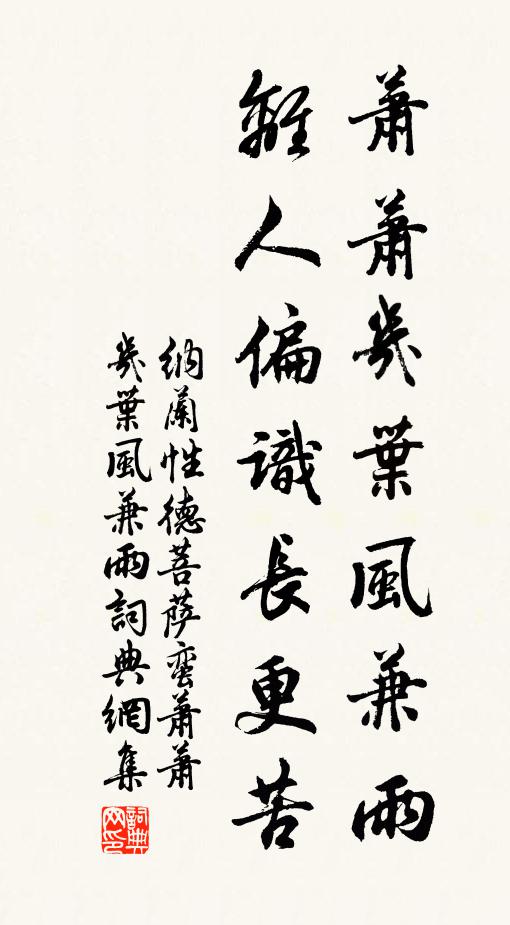 蕭蕭幾葉風兼雨
離人偏識長更苦
納蘭性德菩薩蠻蕭蕭
幾葉風兼雨詞典網集
詞典
网印